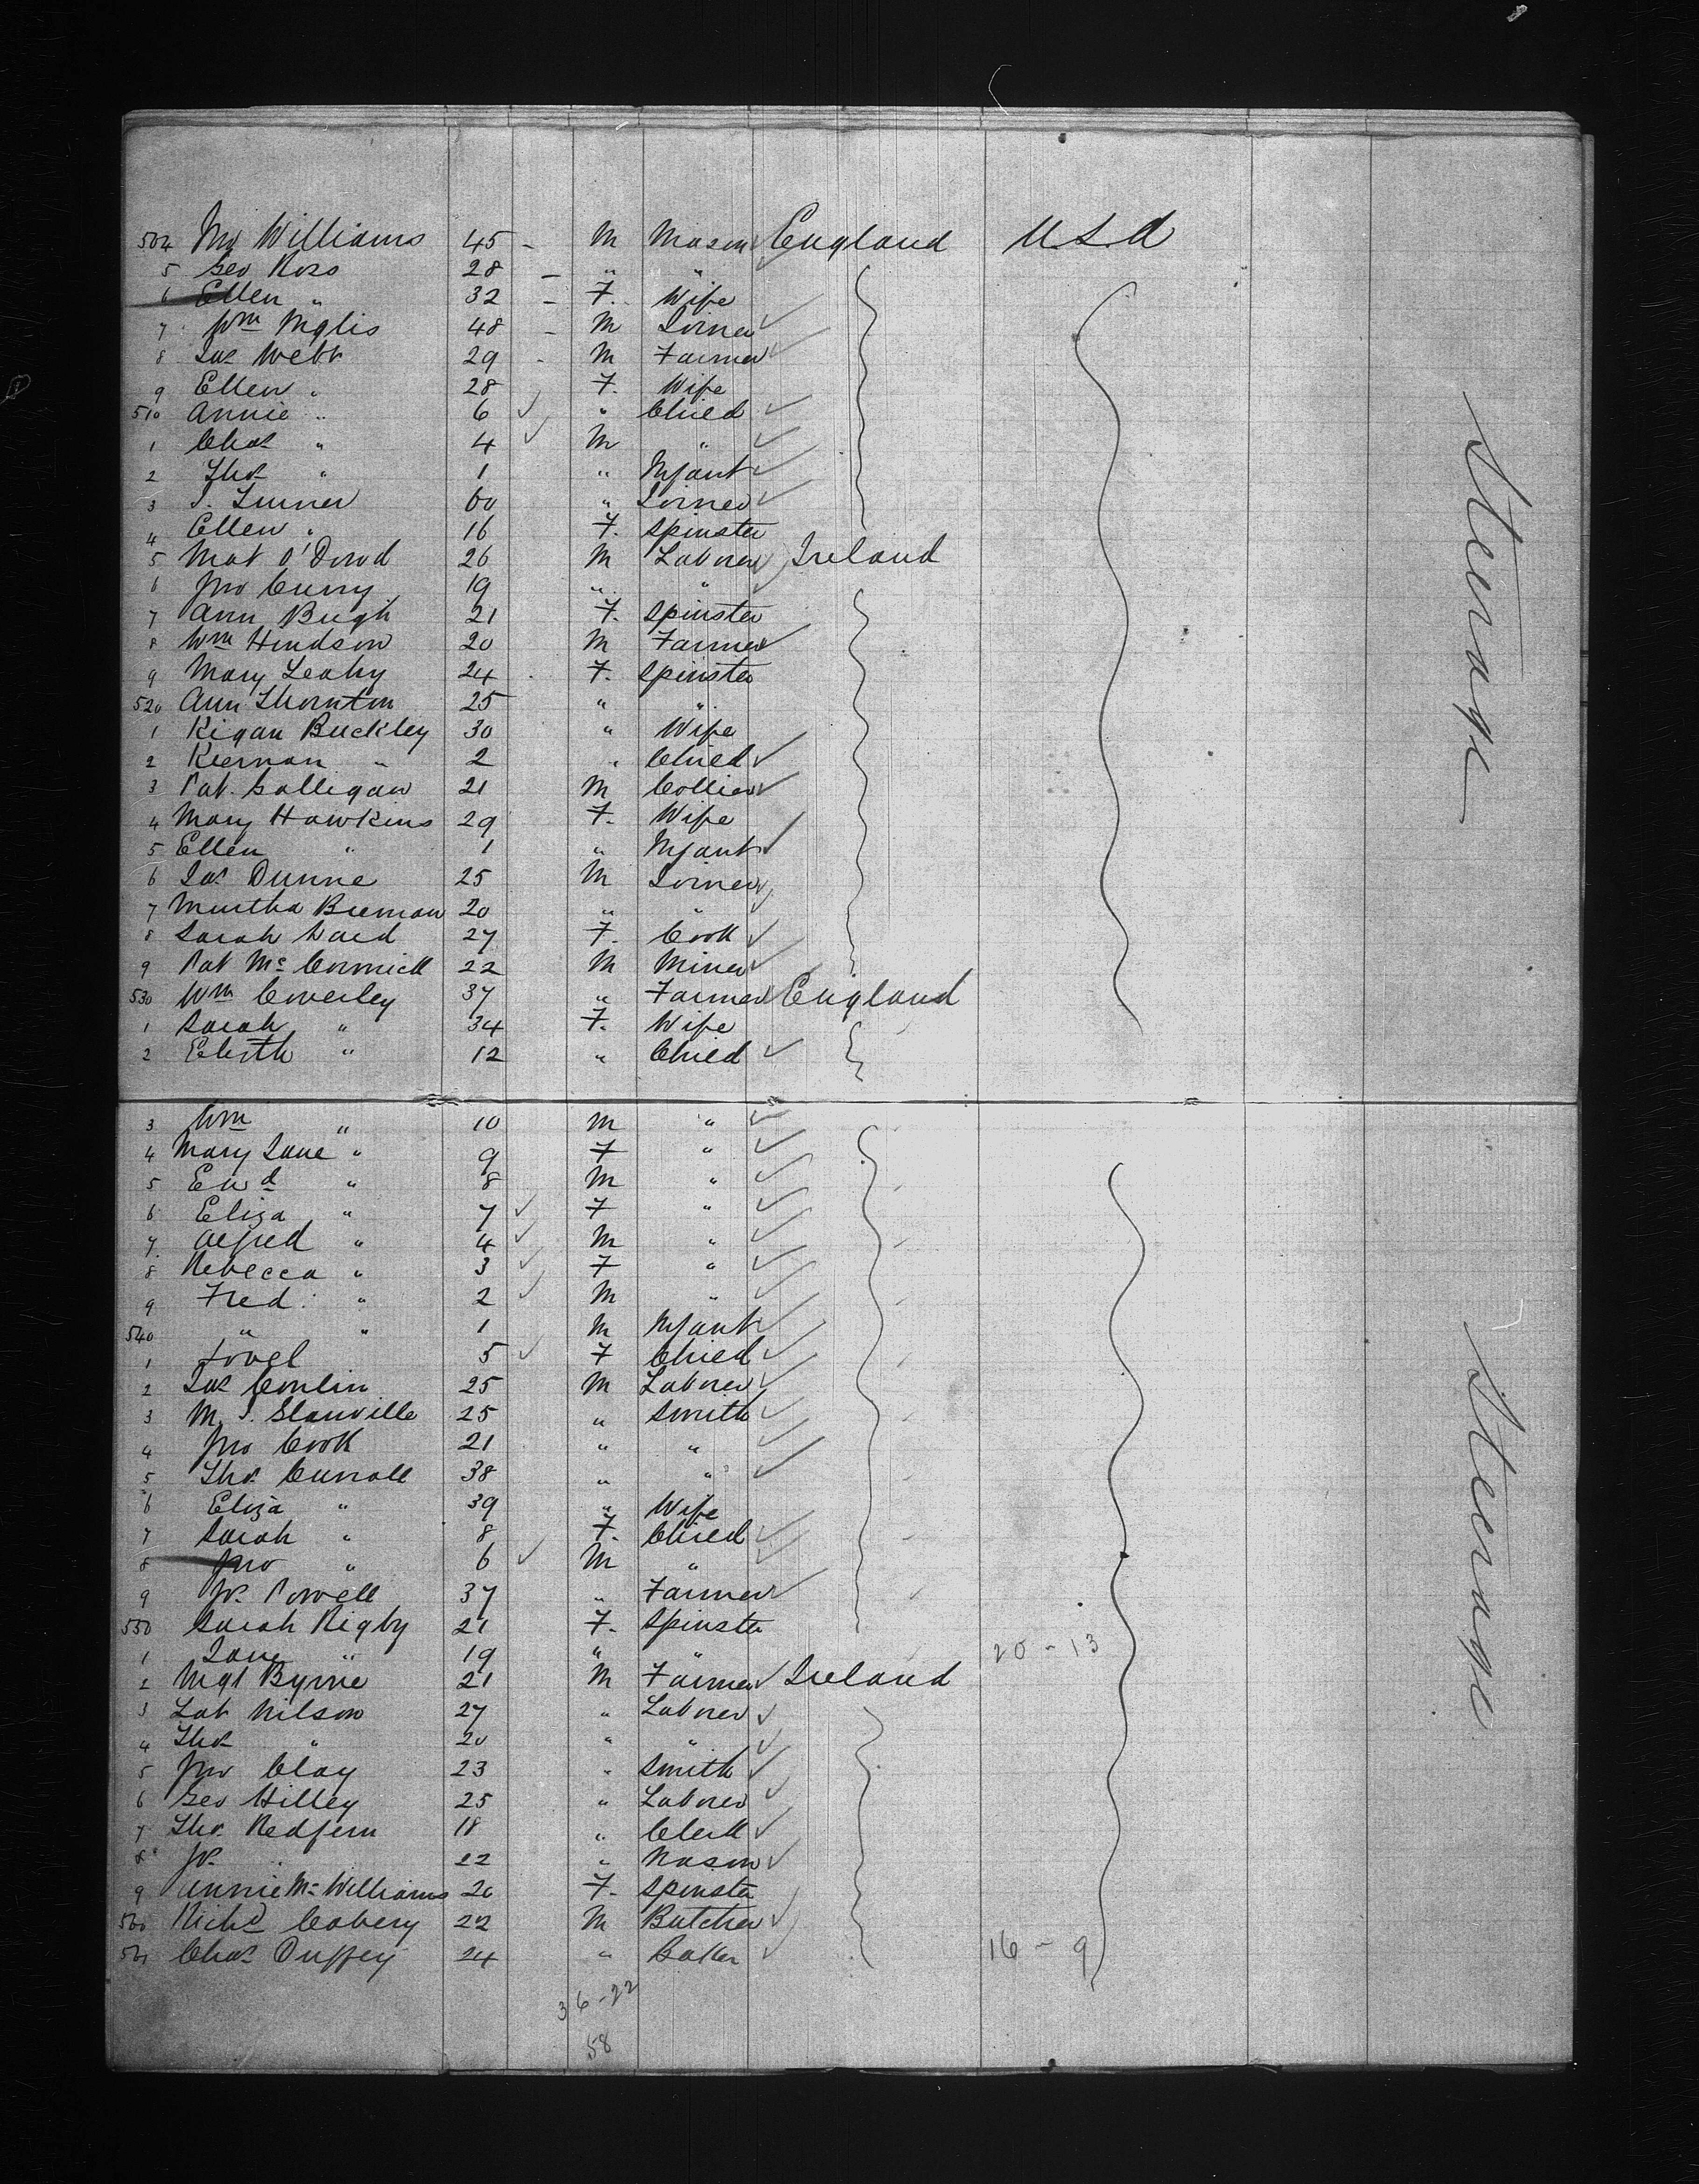 504 Jno Williams 45 - M Mason England USA
5 Geo Ross 28 - " "
6 Ellen " 32 - F. Wife
7 Wm Inglis 48 - M Joiner
8 Jas Webb 29 - M Farmer
9 Ellen " 28 F. Wife
510 Annie " 6 " Child
1 Chas " 4 M "
2 Thos " 1 " Infant
3 J. Turner 60 " Joiner
4 Ellen " 16 F. Spinster
5 Mat O'Dowd 26 M Laborer Ireland
6 Jno Curry 19 " "
7 Ann Bugh 21 F. Spinster
8 Wm Hindson 20 M Farmer
9 Mary Leahy 24 F. Spinster
520 Ann Thornton 25 " "
1 Kigan Buckley 30 " Wife
2 Kiernan " 2 " Child
3 Pat. Galligan 21 M Collier
4 Mary Hawkins 29 F. Wife
5 Ellen " 1 " Infant
6 Jas Dunne 25 M Joiner
7 Murtha Brennan 20 " "
8 Sarah Ward 27 F. Cook
9 Pat McCormick 22 M Miner
530 Wm Coverley 37 " Farmer England
1 Sarah " 34 F. Wife
2 Elizth " 12 " Child
3 Wm " 10 M "
4 Mary Jane " 9 F "
5 Edwd " 8 M "
6 Eliza " 7 F "
7 Alfred " 4 M "
8 Rebecca " 3 F "
9 Fred " 2 M "
540 " " 1 M Infant
1 5 F Child
2 Jas Conlin 25 M Laborer
3 M. J. Glanville 25 " Smith
4 Jno Cook 21 " "
5 Thos Curroll 38 " "
6 Eliza " 39 " Wife
7 Sarah " 8 F. Child
8 Jno " 6 M "
9 Js. Powell 37 " Farmer
550 Sarah Rigby 21 F. Spinster
1 Jane " 19 " " 20 - 13
2 Mgt Byrne 21 M Farmer Ireland
3 Nilson 27 " Laborer
4 Thos " 20 " "
5 Jno Clay 23 " Smith
6 Geo Hilley 25 " Laborer
7 Thos Redfern 18 " Clerk
8 Js. 22 " Mason
9 Annie McWilliams 20 F. Spinster
560 Richd Cobery 22 M Butcher
561 Chas Duffey 24 " Baker 16 - 9
36 - 22
58
Steerage
Steerage